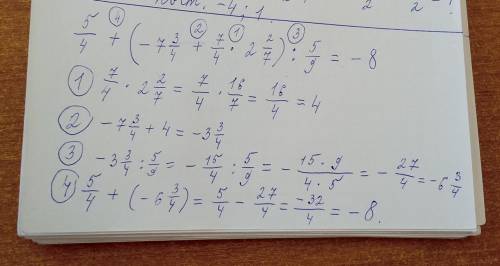 -4; 1.
5/4 + (-7 3/4 + 7/4 · 2 2/7) : 5/9 = -8
④ ② ① ③
① 7/4 · 2 2/7 = 7/4 · 16/7 = 16/4 = 4
② -7 3/4 + 4 = -3 3/4
③ -3 3/4 : 5/9 = -15/4 : 5/9 = - 15·9/4·5 = - 27/4 = -6 3/4
④ 5/4 + (-6 3/4) = 5/4 - 27/4 = -32/4 = -8.